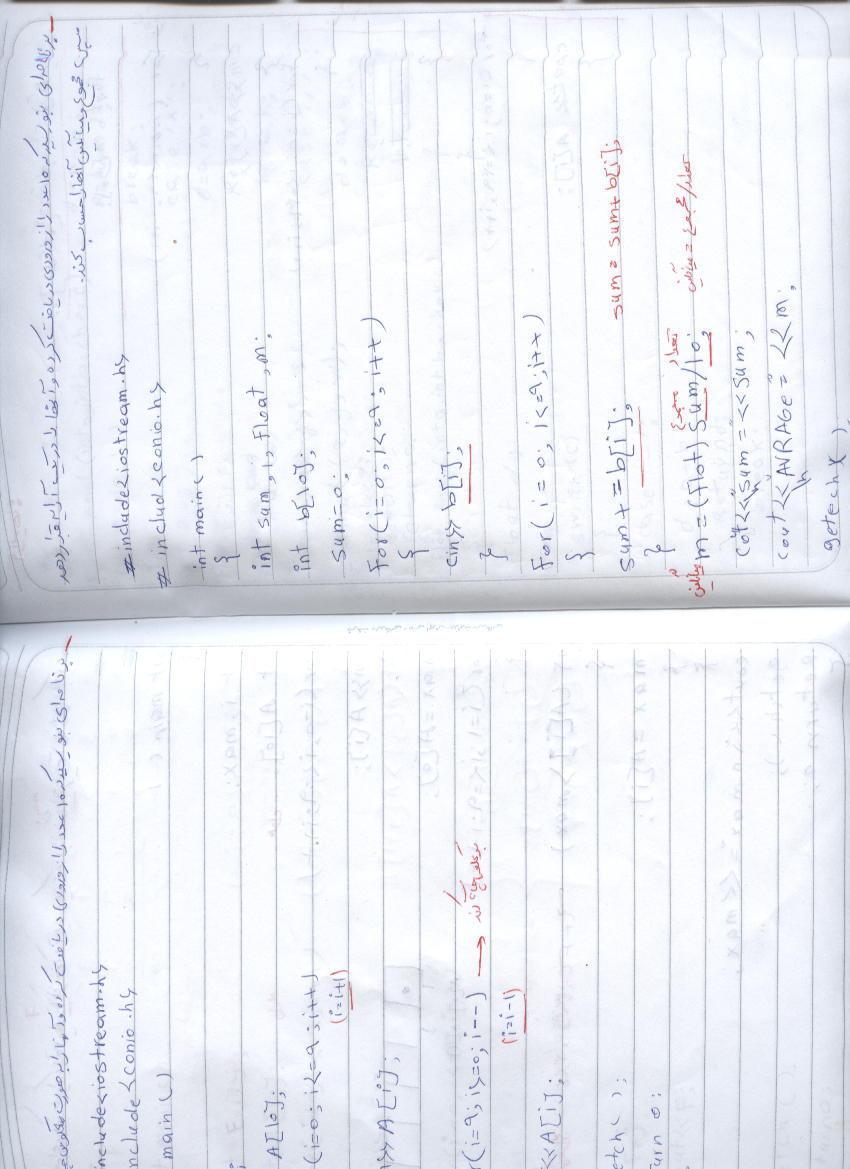 برنامه‌ای بنویسید که 10 عدد را از ورودی دریافت کرده و آنها را در یک آرایه قرار دهد
سپس مجموع و میانگین آنها را حساب کند.
#include<iostream.h>
# includ<conio.h>
int main()
{
int sum,i,float,m;
int b[10];
sum=0;
For(i=0;i<=9;i++)
{
cin>>b[i];
}
For(i=0;i<=9;i++)
{
sum+=b[i]; sum=sum+b[i];
}
مجموع تعداد
میانگین m=(flot)sum/10; میانگین = مجموع/تعداد
cout<<"sum=<<sum;
cout<<"AVRAGe=<<m;
getech()
برنامه‌ای بنویسید که 10 عدد را از ورودی دریافت کرده و آنها را به صورت
nclude<iostream.h>
nclude<conio.h>
main()
A[10];
(i=0;i<=9;i++)
(i=i+1)
>>A[i];
r(i=9;i>=0;i--) →
(i=i-1)
<<A[i];
etch();
urn 0;